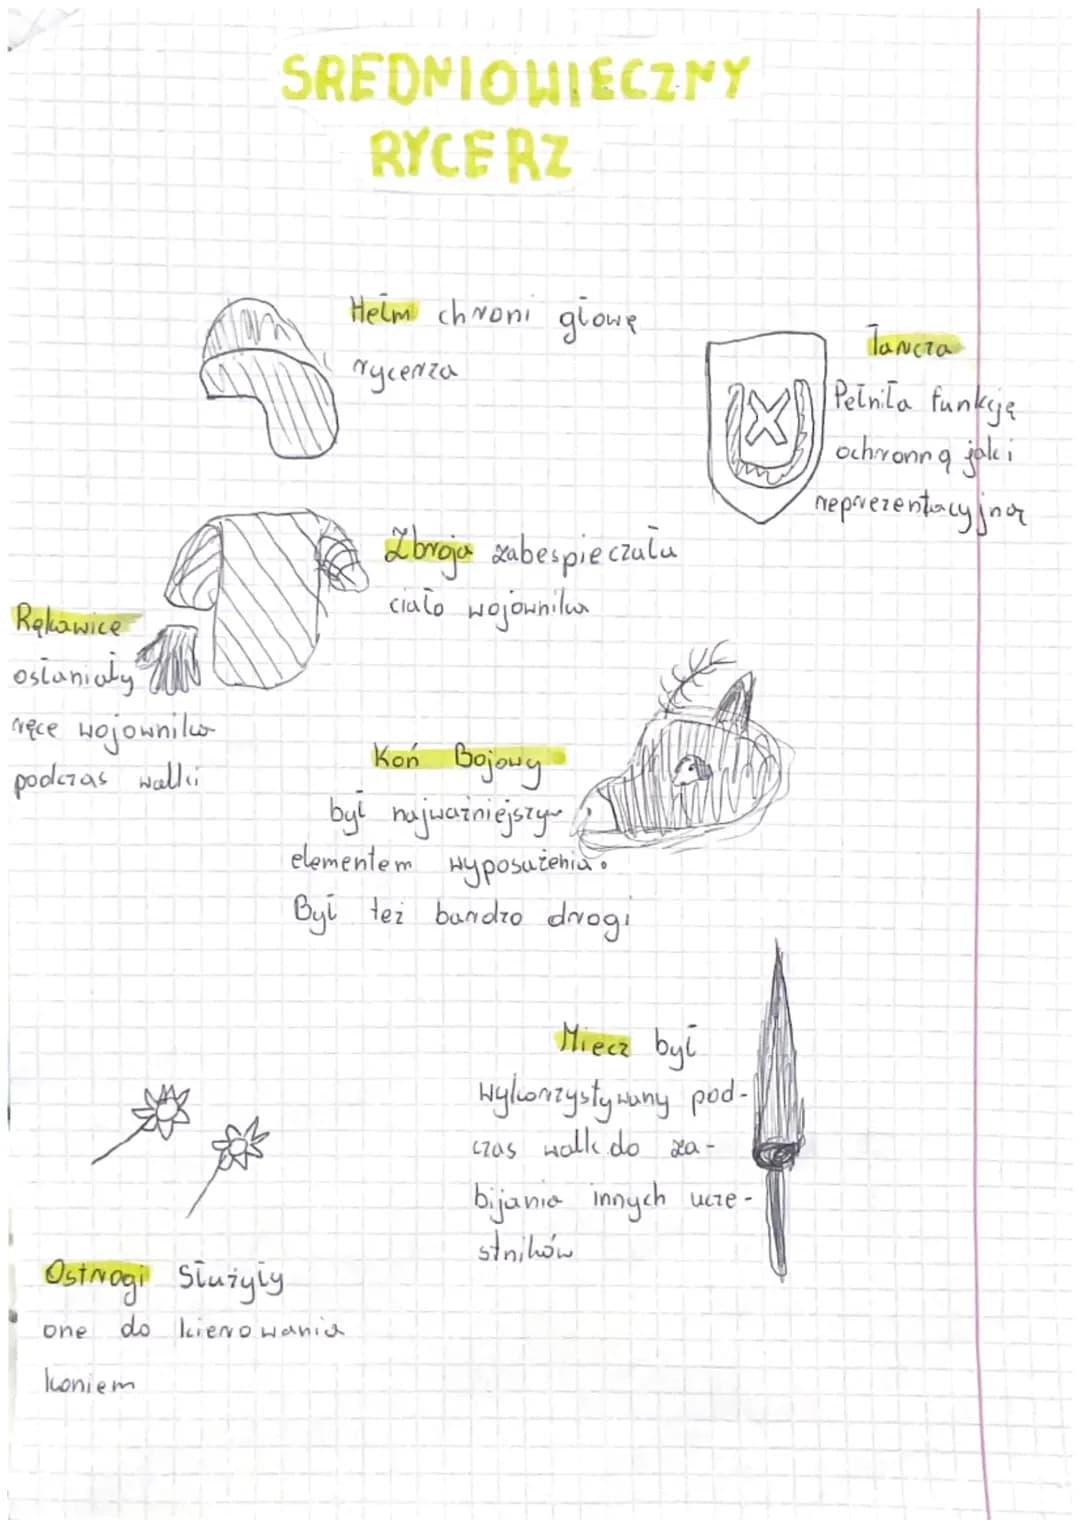 SREDNIOWIECZNY
RYCERZ
Hełm chroni głowę
rycerza
Tarcza
Pełniła funkcję
ochronną jak i
reprezentacyjną
Zbroja zabespieczała
ciało wojownika
Rękawice
osłaniały
ręce wojownika
podczas walki
Koń Bojowy
był najważniejszym
elementem wyposażenia.
Był też bardzo drogi
Miecz był
wykorzystywany pod-
czas walk do za-
bijania innych ucze-
stników
Ostrogi Służyły
one do kierowania
koniem